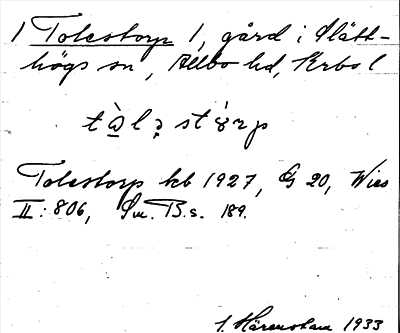 1 Tolestorp 1, gård i Slätt-
högs sn, Allbo hd, Krbs l
tὰlə störp
Tolestorp kb 1927, G 20, Wies
II: 806, Sv. B.s. 189.
1933